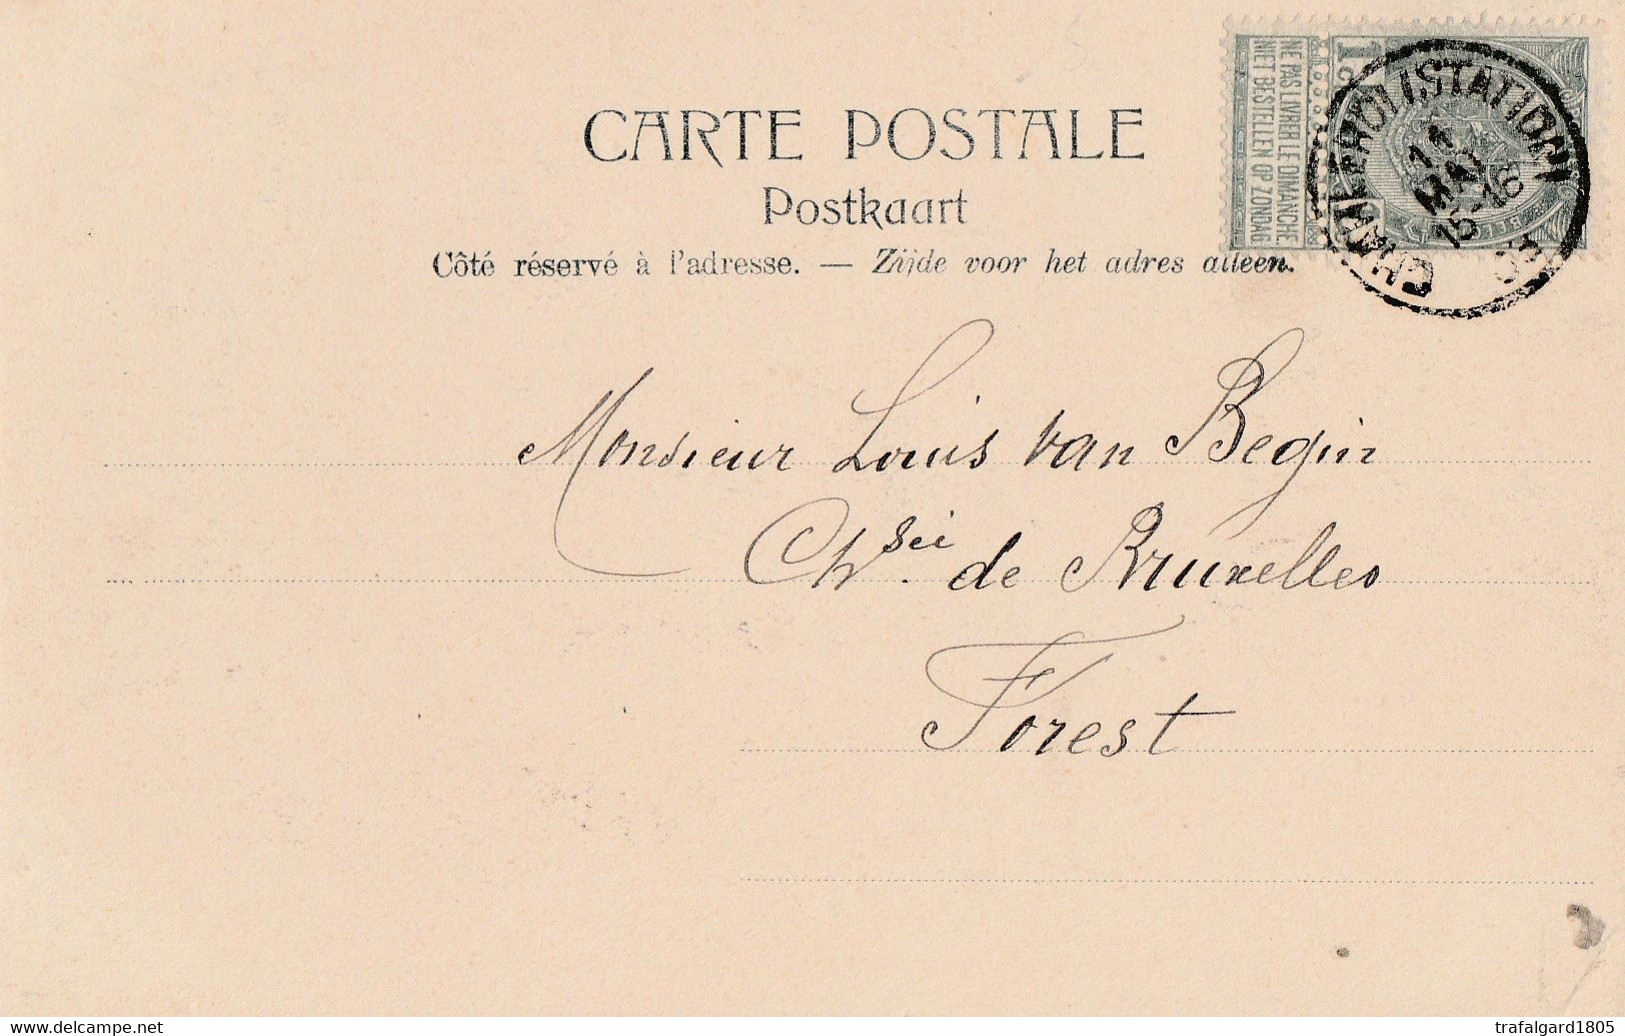 CARTE POSTALE
Postkaart
Côté réservé à l'adresse. — Zijde voor het adres alleen.
NE PAS LIVRER LE DIMANCHE
NIET BESTELLEN OP ZONDAG
1
(STATION)
11
MAI
15-16
Monsieur Louis van Begin
Chséé de Bruxelles
Forest
https://www.delcampe.net
trafalgard1805